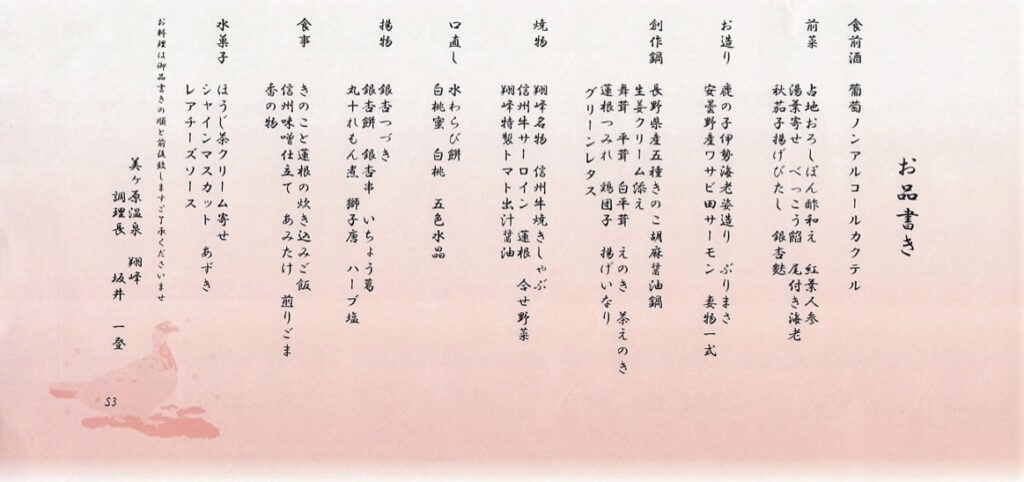 お品書き
食前酒 葡萄ノンアルコールカクテル
前菜
占地おろしぽん酢和え 紅葉人参
湯葉寄せ べっこう餡 尾付き海老
秋茄子揚げびたし 銀杏麩
お造り 鹿の子伊勢海老姿造り ぶりまさ
安曇野産ワサビ田サーモン 妻物一式
創作鍋 長野県産五種きのこ胡麻醤油鍋
生姜クリーム添え
舞茸 平茸 白平茸 えのき 茶えのき
蓮根つみれ 鶏団子 揚げいなり
グリーンレタス
焼物 翔峰名物 信州牛焼きしゃぶ
信州牛サーロイン 蓮根 合せ野菜
翔峰特製トマト出汁醤油
口直し 水わらび餅
白桃蜜 白桃 五色水晶
揚物 銀杏つづき
銀杏餅 銀杏串 いちょう葛
丸十れもん煮 獅子唐 ハーブ塩
食事 きのこと蓮根の炊き込みご飯
信州味噌仕立て あみたけ 煎りごま
香の物
水菓子 ほうじ茶クリーム寄せ
シャインマスカット あずき
レアチーズソース
お料理は御品書きの順と前後致しますご了承くださいませ
美ヶ原温泉 翔峰
調理長 坂井 一登
S3